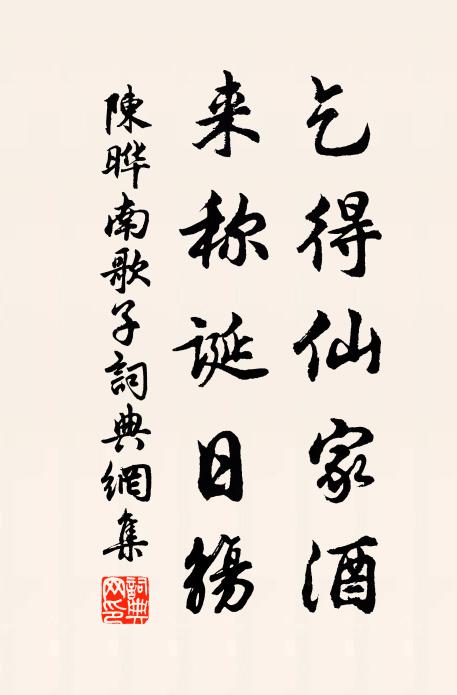 乞得仙家酒
来称诞日觞
陳晔南歌子詞典網集
詞典网印